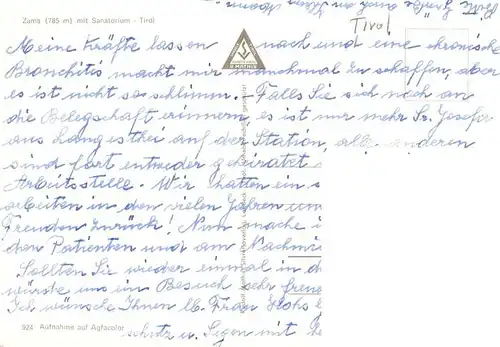 Zams (785 m) mit Sanatorium - Tirol
Tirol
Meine Kräfte lassen nach und eine chronische
Bronchitis macht mir manchmal zu schaffen, aber
es ist nicht so schlimm. - Falls Sie sich noch an
die Belegschaft erinnern, es ist nur mehr Sr. Josefa
aus Langesthei auf der Station, alle anderen
sind fort entweder geheiratet
Arbeitsstelle. Wir hatten ein
arbeiten in den vielen Jahren
Freuden zurück! Nun mache i
den Patienten und am Nachmi
Sollten Sie wieder einmal in d
würde uns ein Besuch sehr freue
Ich wünsche Ihnen lb. Frau
924 Aufnahme auf Agfacolor
schutz u. Segen mit